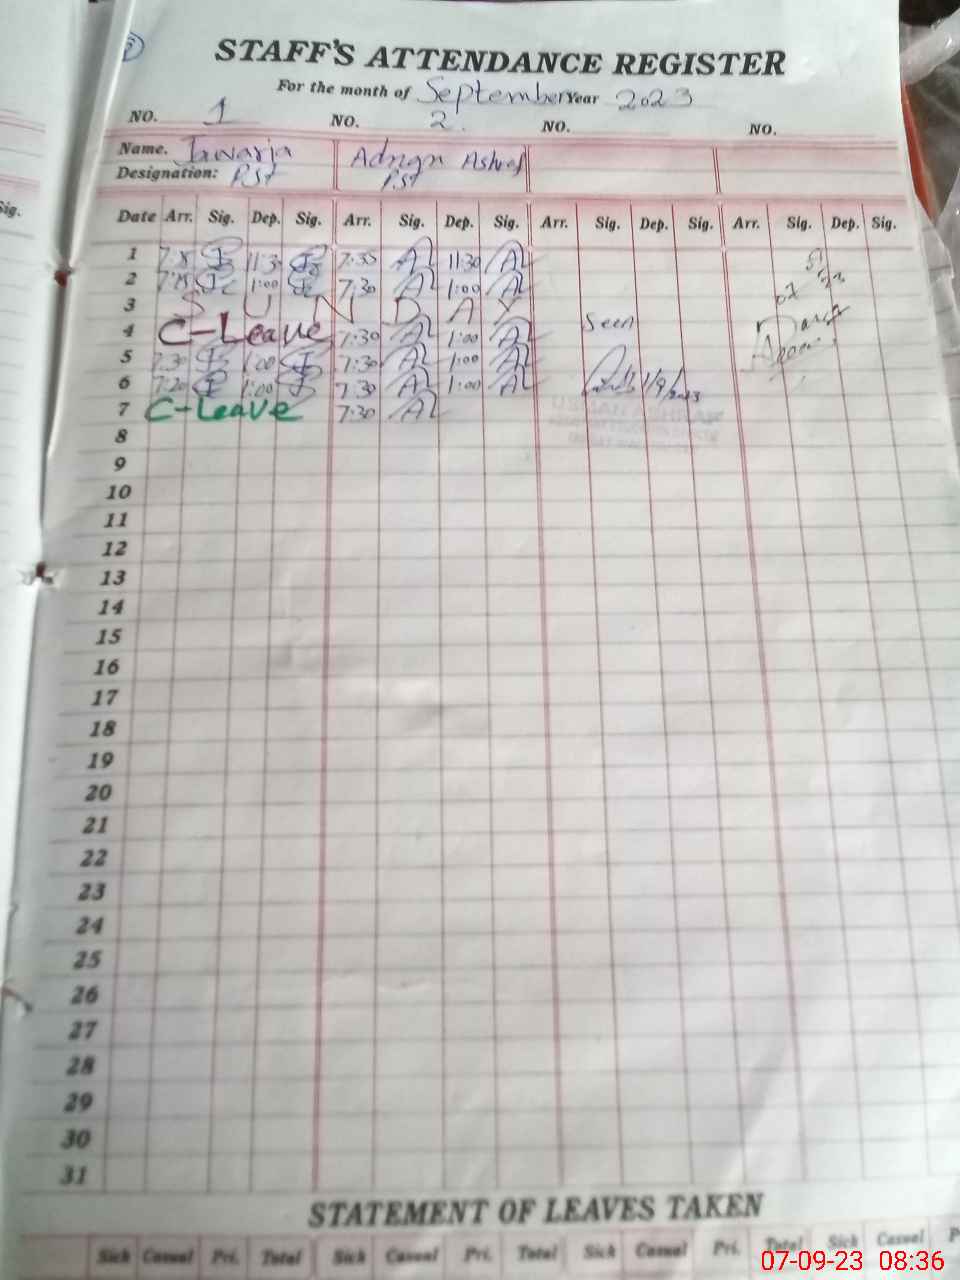 STAFF'S ATTENDANCE REGISTER
For the month of September Year 2023
NO. 1 NO. 2. NO. NO.
Name. Adnan Ashraf
Designation: PST PST
Date Arr. Sig. Dep. Sig. Arr. Sig. Dep. Sig. Arr. Sig. Dep. Sig. Arr. Sig. Dep. Sig.
Sig.
1 11:30 7:35 AL 11:30 AL
2 1:00 7:30 AL 1:00 AL
3 S U N D A Y
4 C-Leave 7:30 AL 1:00 AL Seen
5 7:30 1:00 7:30 AL 1:00 AL
6 7:20 1:00 7:30 AL 1:00 AL 1/9/2023
7 C-Leave 7:30 AL
8
9
10
11
12
13
14
15
16
17
18
19
20
21
22
23
24
25
26
27
28
29
30
31
STATEMENT OF LEAVES TAKEN
Sick Casual Pri. Total Sick Casual Pri. Total Sick Casual Pri. Total
07-09-23 08:36